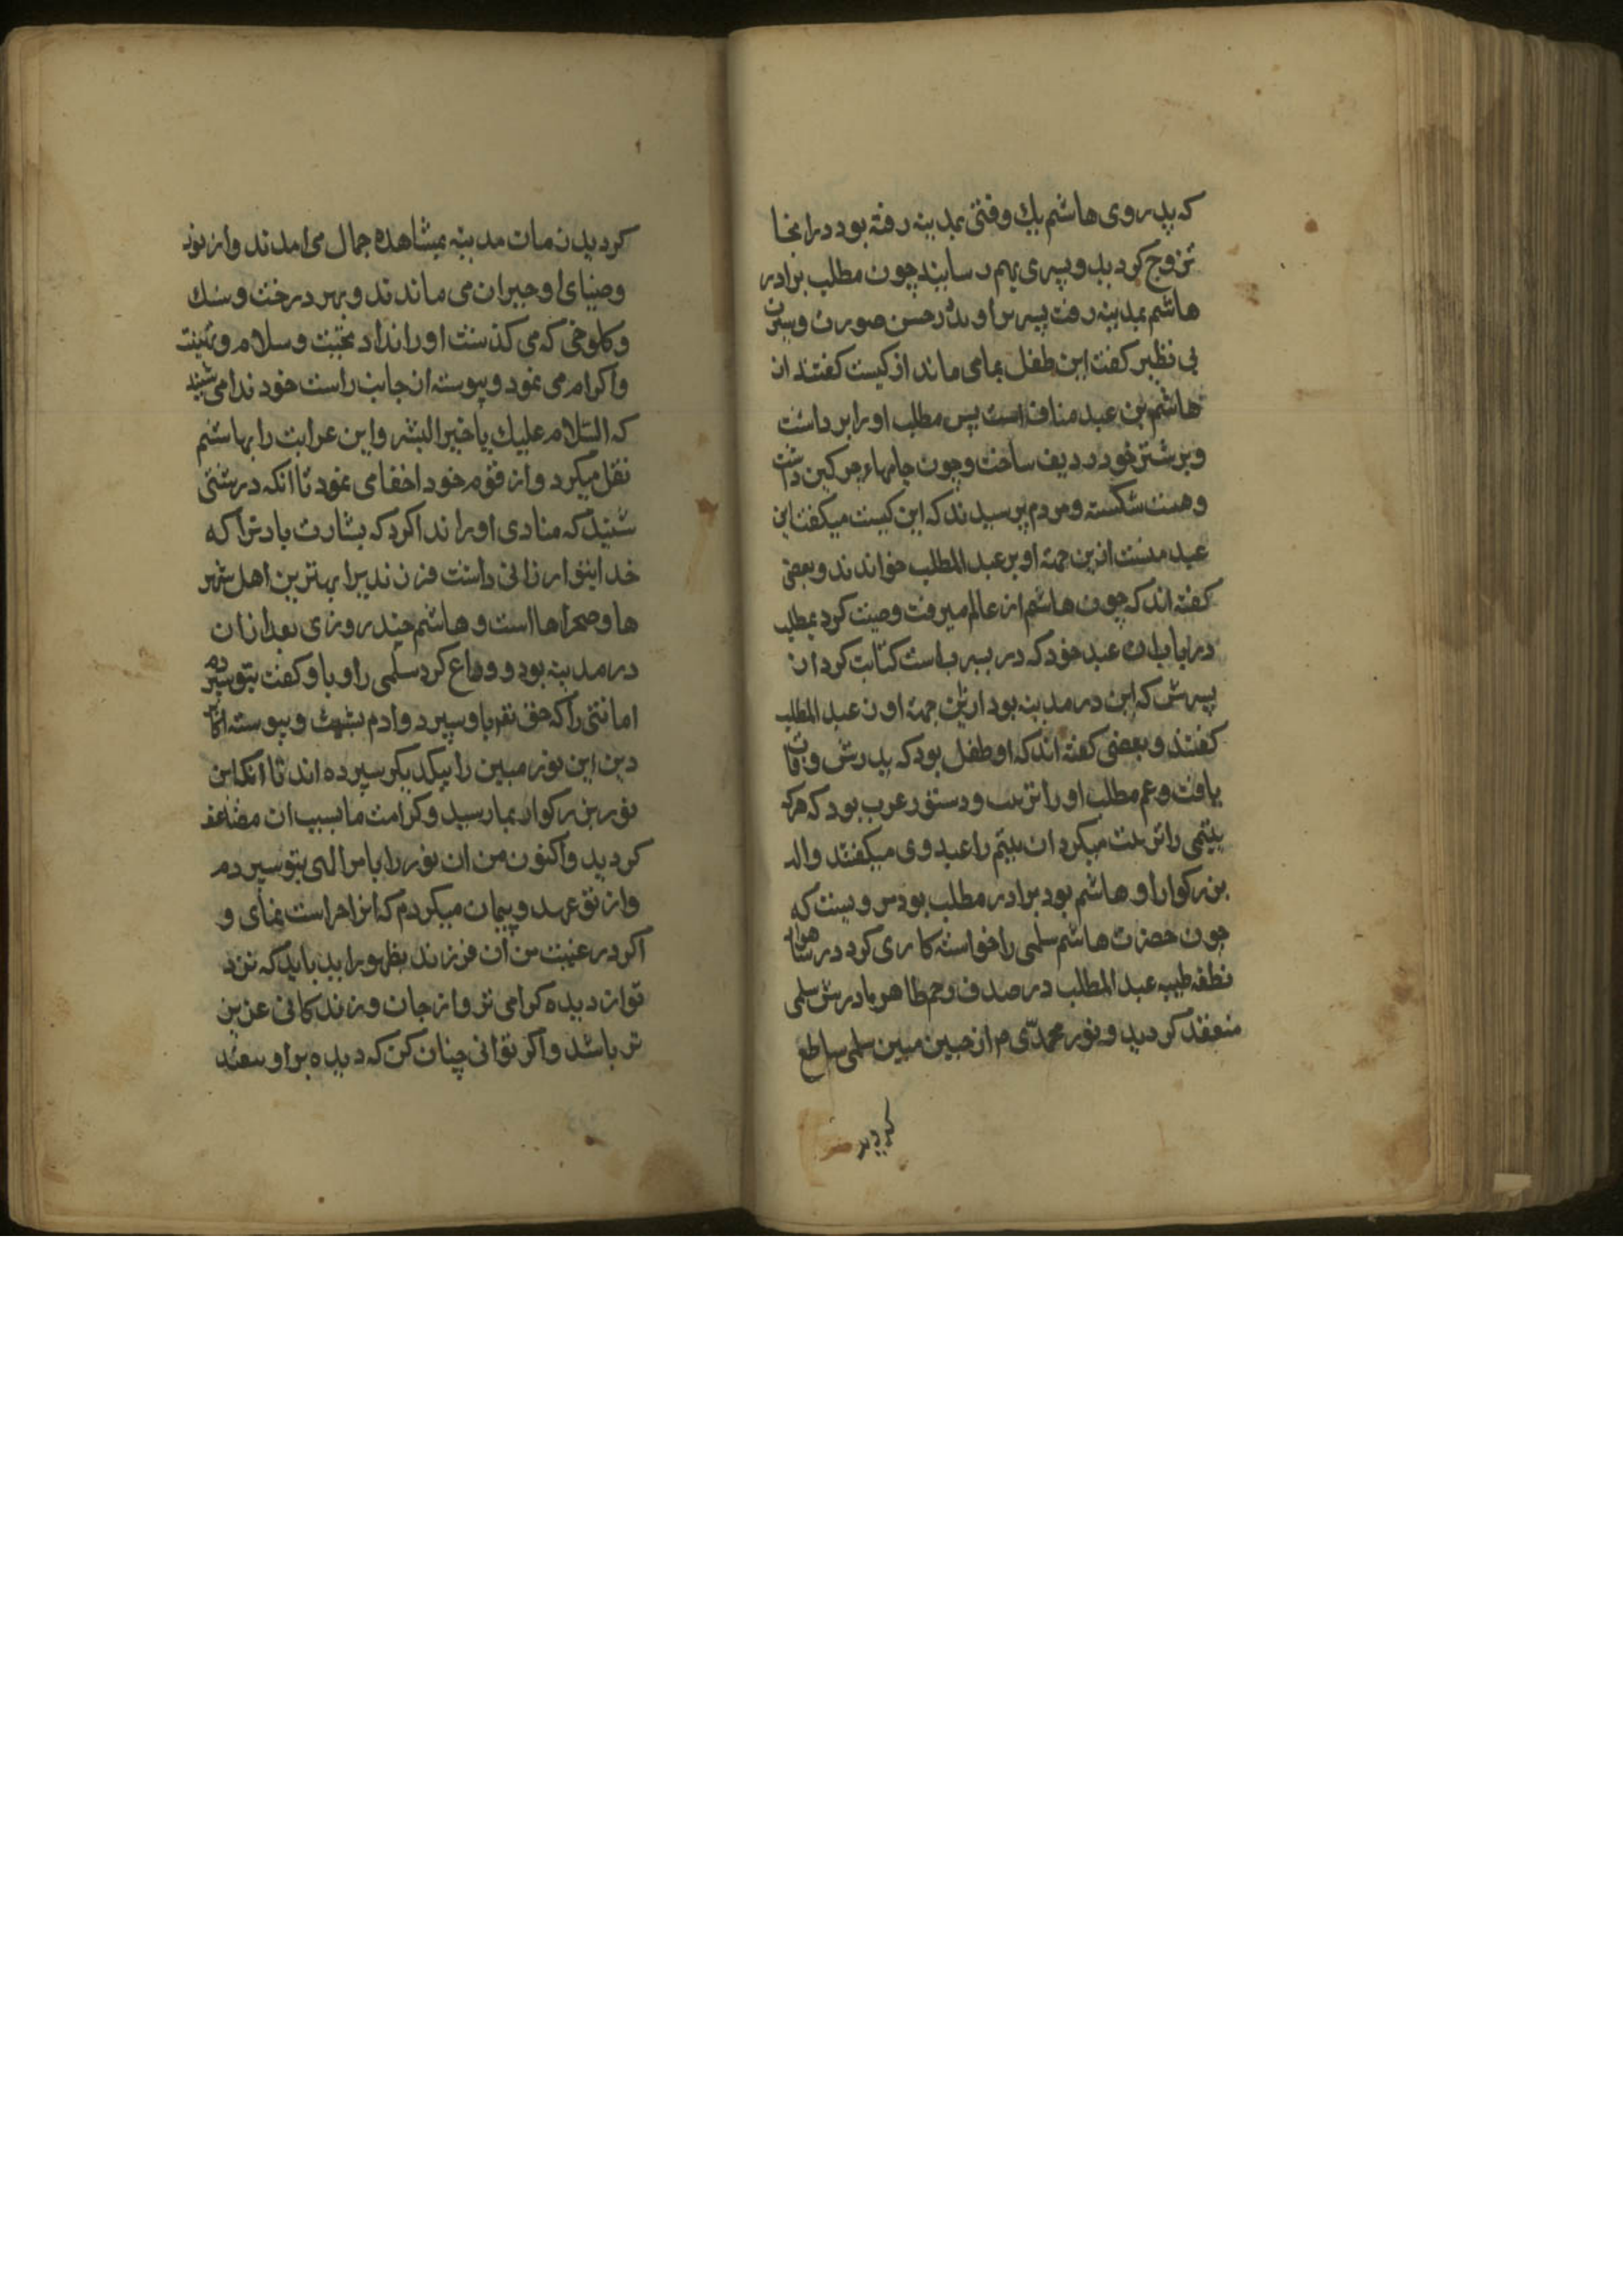 که پدر وی هاشم یك وقتی بمدینه رفته بود در انجا
تزوج کردید و پسری بهم رسانید چون مطلب برادر
هاشم بمدینه رفت پسر را دید در حسن صورت و سیرت
بی نظیر گفت این طفل بمامی ماند از کیست گفتند از
هاشم بن عبد مناف است پس مطلب او را برداشت
و بر شتر خود ردیف ساخت و چون جامهاء چرکین داشت
و هیئت شکسته و مردم پرسیدند که این کیست میکفت این
عبد منست ازین جهة او را عبد المطلب خواندند و بعضی
کفته اند که چون هاشم از عالم میرفت وصیت کرد بمطلب
دریاب ان عبد خود که در یثرب است کنایت کرد از
پسرش که این در مدینه بود ازین جهة او را عبد المطلب
کفتند و بعضی کفته اند که او طفل بود که پدرش وفات
یافت و عم مطلب او را تربیت و دستور عرب بود که هرکه
یتیمی را تربیت میکرد ان یتیم را عبد وی میکفتند والد
بزرکوار او هاشم بود برادر مطلب بود مرویست که
چون حضرت هاشم سلمی را خواستکاری کرد در
نطفه طیبه عبد المطلب در صدف رحم طاهر مادرش سلمی
منعقد کردید و نور محمدی م از جبین مبین سلمی ساطع
کردید
کردید زمان مدینه بمشاهده جمال می امدند و از نور
و ضیای او حیران می ماندند و بهر درخت و سنك
و کلوخی که می کذشت او را ندا تحیت و سلام و تهنیت
و اکرام می نمود و پیوسته از جانب راست خود ندا می شنید
که السّلام علیك یا خیر البشر و این غرایب را بهاشم
نقل میکرد و از قوم خود اخفا می نمود تا انکه در شبی
شنید که منادی او را ندا کرد که بشارت باد ترا که
خدا بتو ارزانی داشت فرزندیرا بهترین اهل شهر
ها و صحراها است و هاشم چند روزی بعد از ان
در مدینه بود و وداع کرد سلمی را و با و کفت بتو سپردم
امانتی را که حق تعم باو سپرد و ادم بشیث و پیوسته اکابر
دین این نور مبین را بیکدیکر سپرده اند تا انکه این
نور بزرکوار بما رسید و کرامت ما بسبب ان مضاعف
کردید و اکنون من ان نور را بامر الهی بتو سپردم
و از تو عهد و پیمان میکردم که انرا حراست نمای و
اکر در غیبت من آن فرزند بظهور اید باید که نزد
تو از دیده کرامی تر و از جان و زندکانی عزیز
تر باشد و اکر توانی چنان کن که دیده بر او نیفتد